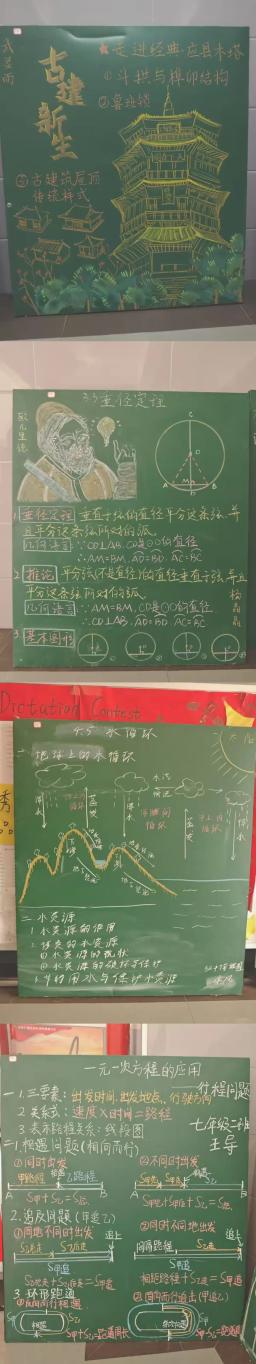 古建新生
★走进经典·应县木塔
①斗拱与榫卯结构
②鲁班锁
③古建筑屋顶
传统样式
3.3垂径定理
欧几里德
C
O
A
M
B
D
1. 垂径定理 垂直于弦的直径平分这条弦,并
且平分这条弦所对的弧.
几何语言 ∵CD⊥AB, CD是⊙O的直径
∴AM=BM, AD=BD, AC=BC
2. 推论 平分弦(不是直径)的直径垂直于弦,并且
平分这条弦所对的弧.
几何语言 ∵AM=BM, CD是⊙O的直径
∴CD⊥AB, AD=BD, AC=BC
3. 基本图形
杨晶晶
Dictation Contest
秀
4.5 水循环
一 地球上的水循环
太阳
降水
蒸发
降水
蒸发
降水
二 水资源
1 水资源的作用
①水资源的现状
3 节约用水与保护水资源
一元一次方程的应用
——行程问题
七年级二班
王导
一. 1. 三要素: 出发时间、出发地点、行驶方向
2. 关系式: 速度×时间=路程
3. 表示路程关系: 线段图
二. 1. 相遇问题(相向而行)
①同时出发
②不同时出发
甲路程
相遇
乙路程
A
B
A
B
S甲+S乙=S总
2. 追及问题(甲追乙)
①同地不同时出发
②同时不同地出发
追上
追上
间隔路程
S乙
S甲追
S乙先走+S乙后走=S甲追
相距路程+S乙走=S甲追
3. 环形跑道
①反向而行相遇
②同向而行追击(甲追乙)
S甲
S乙
S甲+S乙=跑道周长